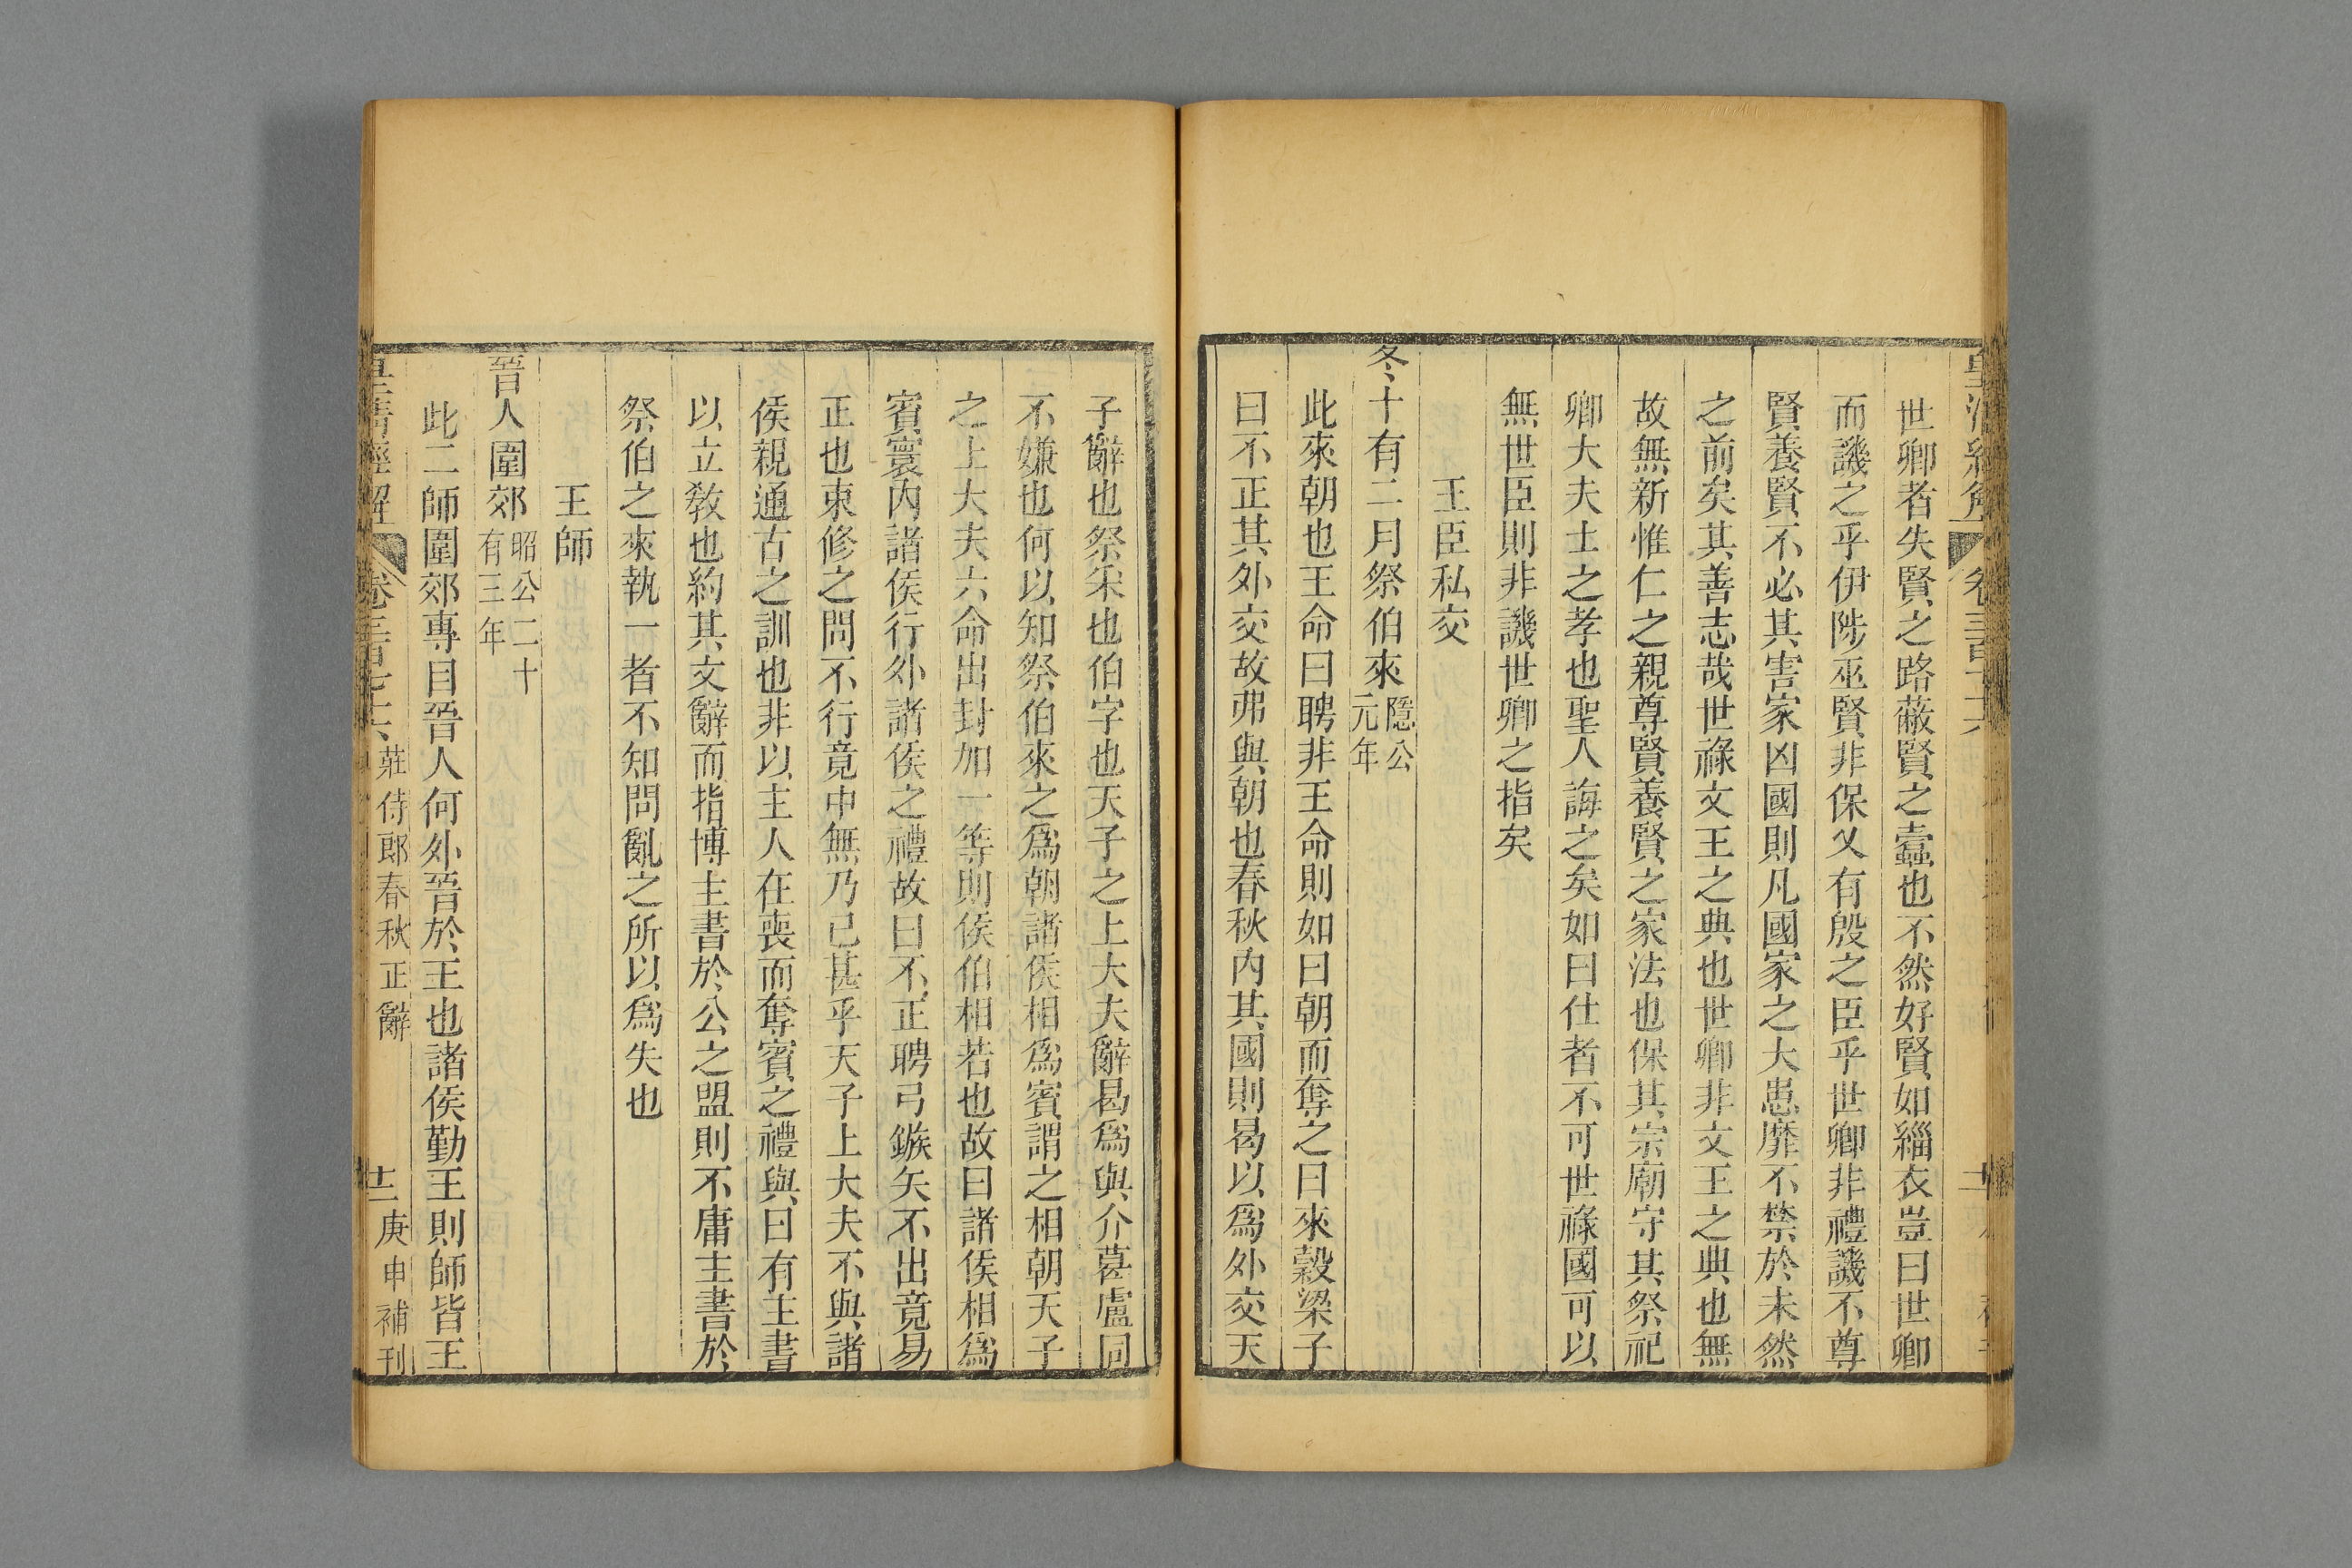 世卿者失賢之路蔽賢之蠹也不然好賢如緇衣豈曰世卿
而譏之乎伊陟巫賢非保乂有殷之臣乎世卿非禮譏不尊
賢養賢不必其害家凶國則凡國家之大患靡不禁於未然
之前矣其善志哉世祿文王之典也世卿非文王之典也無
故無新惟仁之親尊賢養賢之家法也保其宗廟守其祭祀
卿大夫士之孝也聖人誨之矣如曰仕者不可世祿國可以
無世臣則非譏世卿之指矣
王臣私交
冬十有二月祭伯來隱公元年
此來朝也王命曰聘非王命則如曰朝而奪之曰來穀梁子
曰不正其外交故弗與朝也春秋內其國則曷以爲外交天
子辭也祭宋也伯字也天子之上大夫辭曷爲與介葛盧同
不嫌也何以知祭伯來之爲朝諸侯相爲賓謂之相朝天子
之上大夫六命出封加一等則侯伯相若也故曰諸侯相爲
賓寰內諸侯行外諸侯之禮故曰不正聘弓鍭矢不出竟易
正也束修之問不行竟中無乃已甚乎天子上大夫不與諸
侯親通古之訓也非以主人在喪而奪賓之禮與曰有主書
以立敎也約其文辭而指博主書於公之盟則不庸主書於
祭伯之來執一者不知問亂之所以爲失也
王師
晉人圍郊昭公二十有三年
此二師圍郊專目晉人何外晉於王也諸侯勤王則師皆王
皇淸經解 卷三百七十六 莊侍郎春秋正辭 十二 庚申補刊